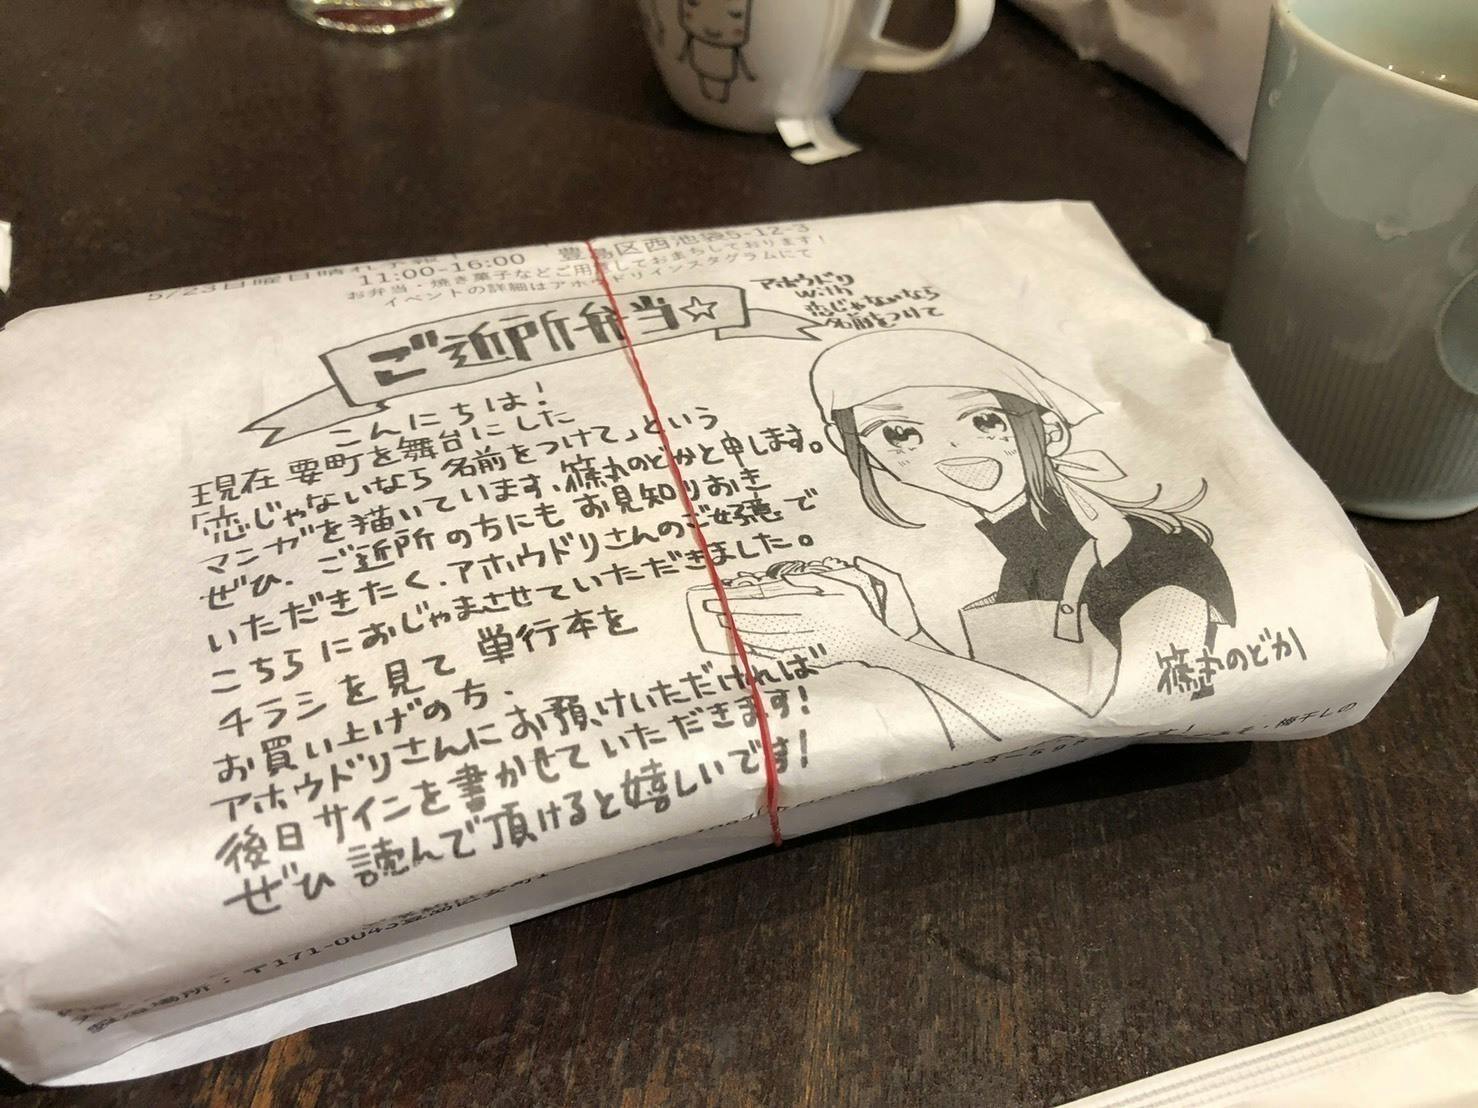 5/23日曜日晴れ予報！
11:00-16:00 豊島区西池袋5-12-3
お弁当・焼き菓子などご用意しておまちしております！
イベントの詳細はアホウドリインスタグラムにて
ご近所弁当☆
アホウドリ
with
恋じゃないなら
名前をつけて
こんにちは！
現在 要町を舞台にした
「恋じゃないなら 名前をつけて」という
マンガを描いています、篠丸のどかと申します。
ぜひ、ご近所の方にもお見知りおき
いただきたく、アホウドリさんのご好意で
こちらにおじゃまさせていただきました。
チラシを見て 単行本を
お買い上げの方、
アホウドリさんにお預けいただければ
後日サインを書かせていただきます！
ぜひ 読んで頂けると嬉しいです！
篠丸のどか
・梅干しの
場所：〒171-0043豊島区要町1